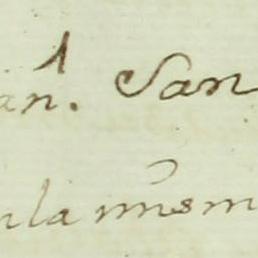 an. San
nla mism